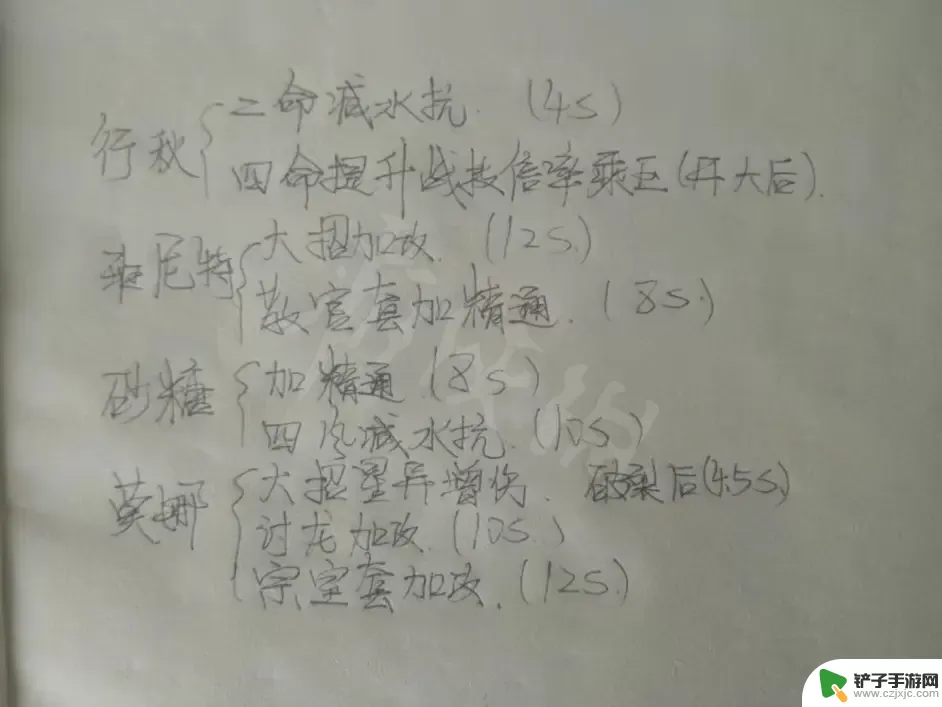 行秋
二命减水抗.(4s)
四命提升战技倍率乘区(开大后).
班尼特
大招加攻.(12s.)
教官套加精通.(8s.)
砂糖
加精通(8s)
四风减水抗.(10s)
莫娜
大招星异增伤. 破裂后(4.5s.)
讨龙加攻.(10s.)
宗室套加攻.(12s.)
铲子手游网
www.czjxjc.com